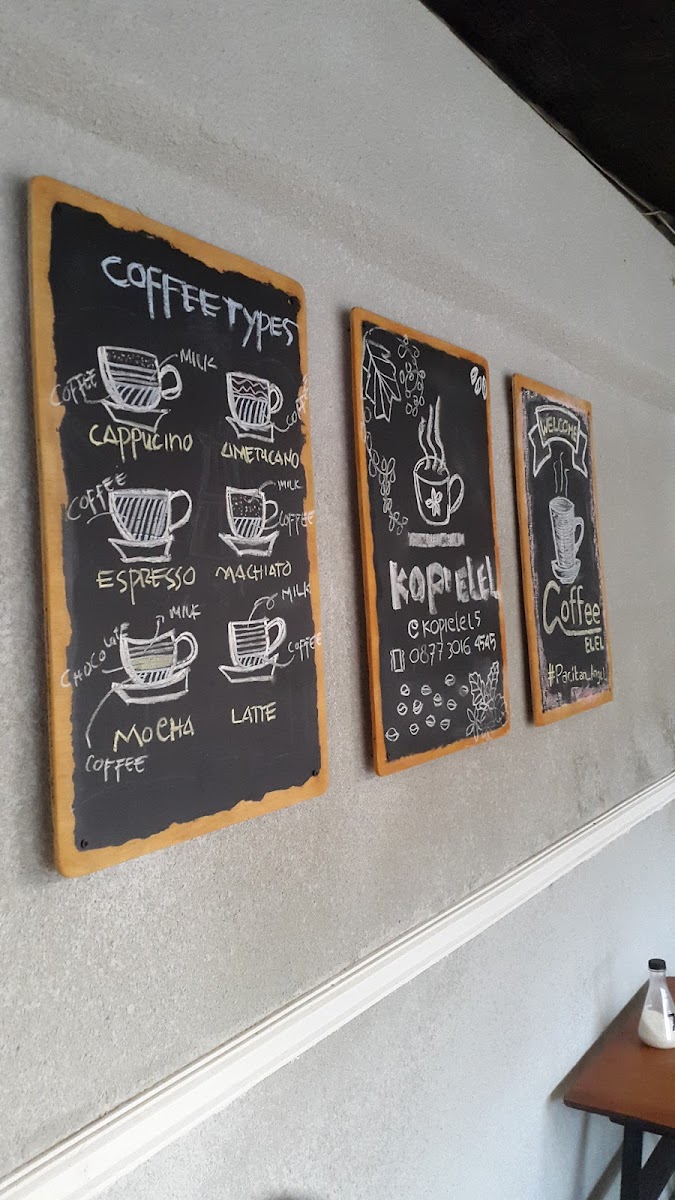 COFFEE TYPES
COFFEE
MILK
COFFEE
CAPPUCINO
AMERICANO
COFFEE
MILK
COFFEE
ESPRESSO
MACHIATO
CHOCOLATE
MILK
MILK
COFFEE
MOCHA
LATTE
COFFEE
KOPI ELEL
@KOPIELEL5
0877 3016 4545
WELCOME
Coffee
ELEL